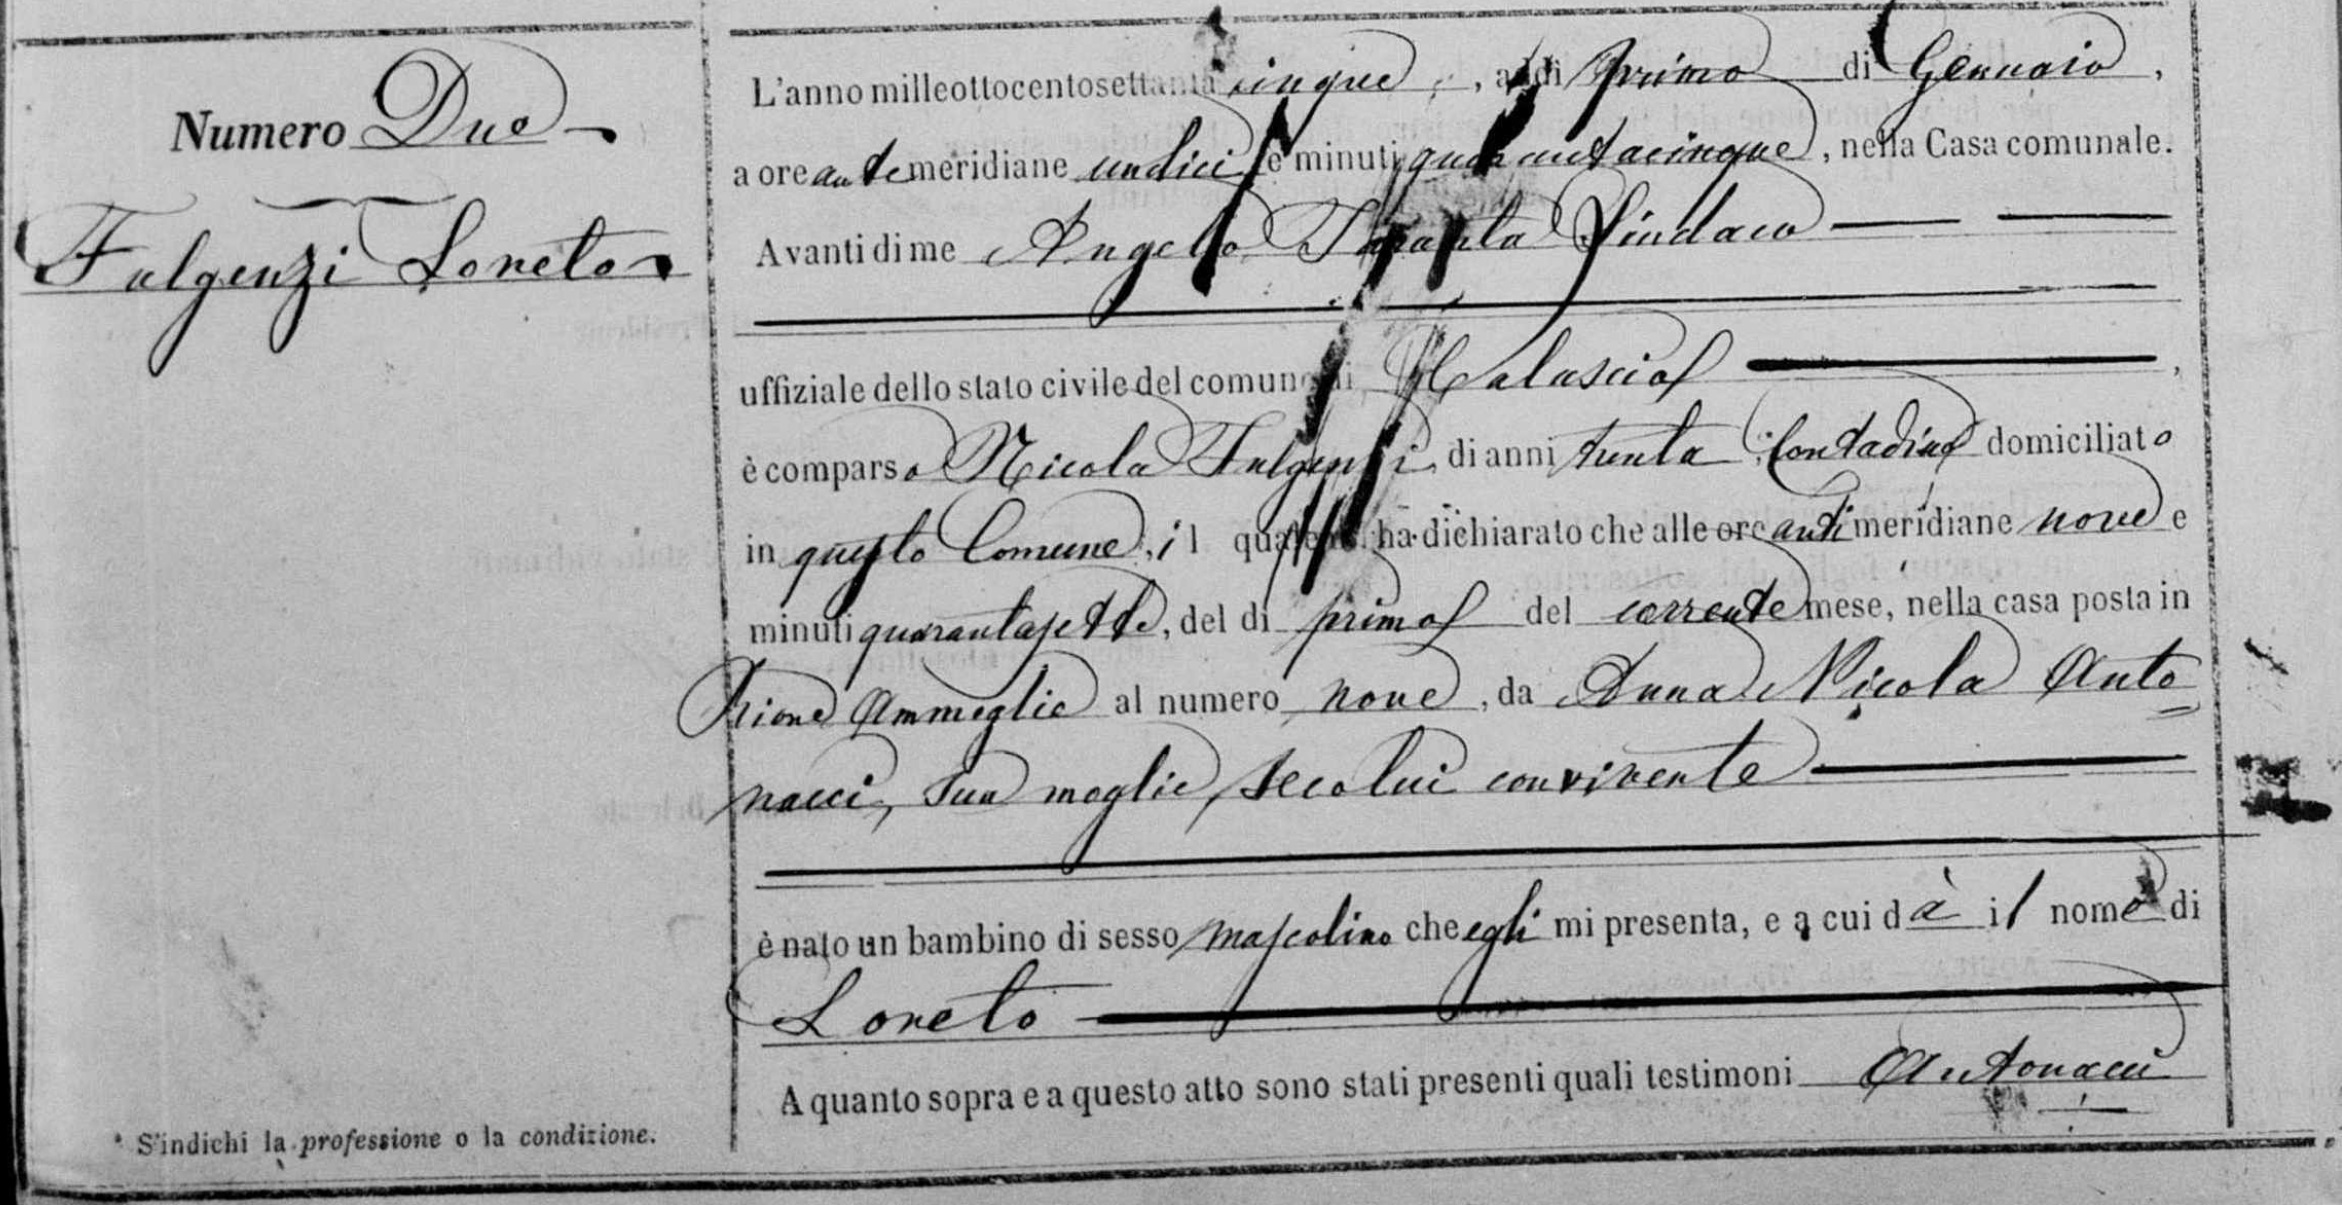 Numero Due
Fulgenzi Loreto
L'anno milleottocentosettanta cinque, addì primo di Gennaio,
a ore antemeridiane undici e minuti quarantacinque, nella Casa comunale.
Avanti di me Angelo Taranta Sindaco
uffiziale dello stato civile del comune di Calascio,
è comparso Nicola Fulgenzi, di anni trenta, contadino domiciliato
in questo Comune, il quale mi ha dichiarato che alle ore antimeridiane nove e
minuti quarantasette, del dì primo del corrente mese, nella casa posta in
Rione Ammeglie al numero nove, da Anna Nicola Anto
nacci, sua moglie, seco lui convivente
è nato un bambino di sesso mascolino che egli mi presenta, e a cui dà il nome di
Loreto
A quanto sopra e a questo atto sono stati presenti quali testimoni Antonacci
* S'indichi la professione o la condizione.